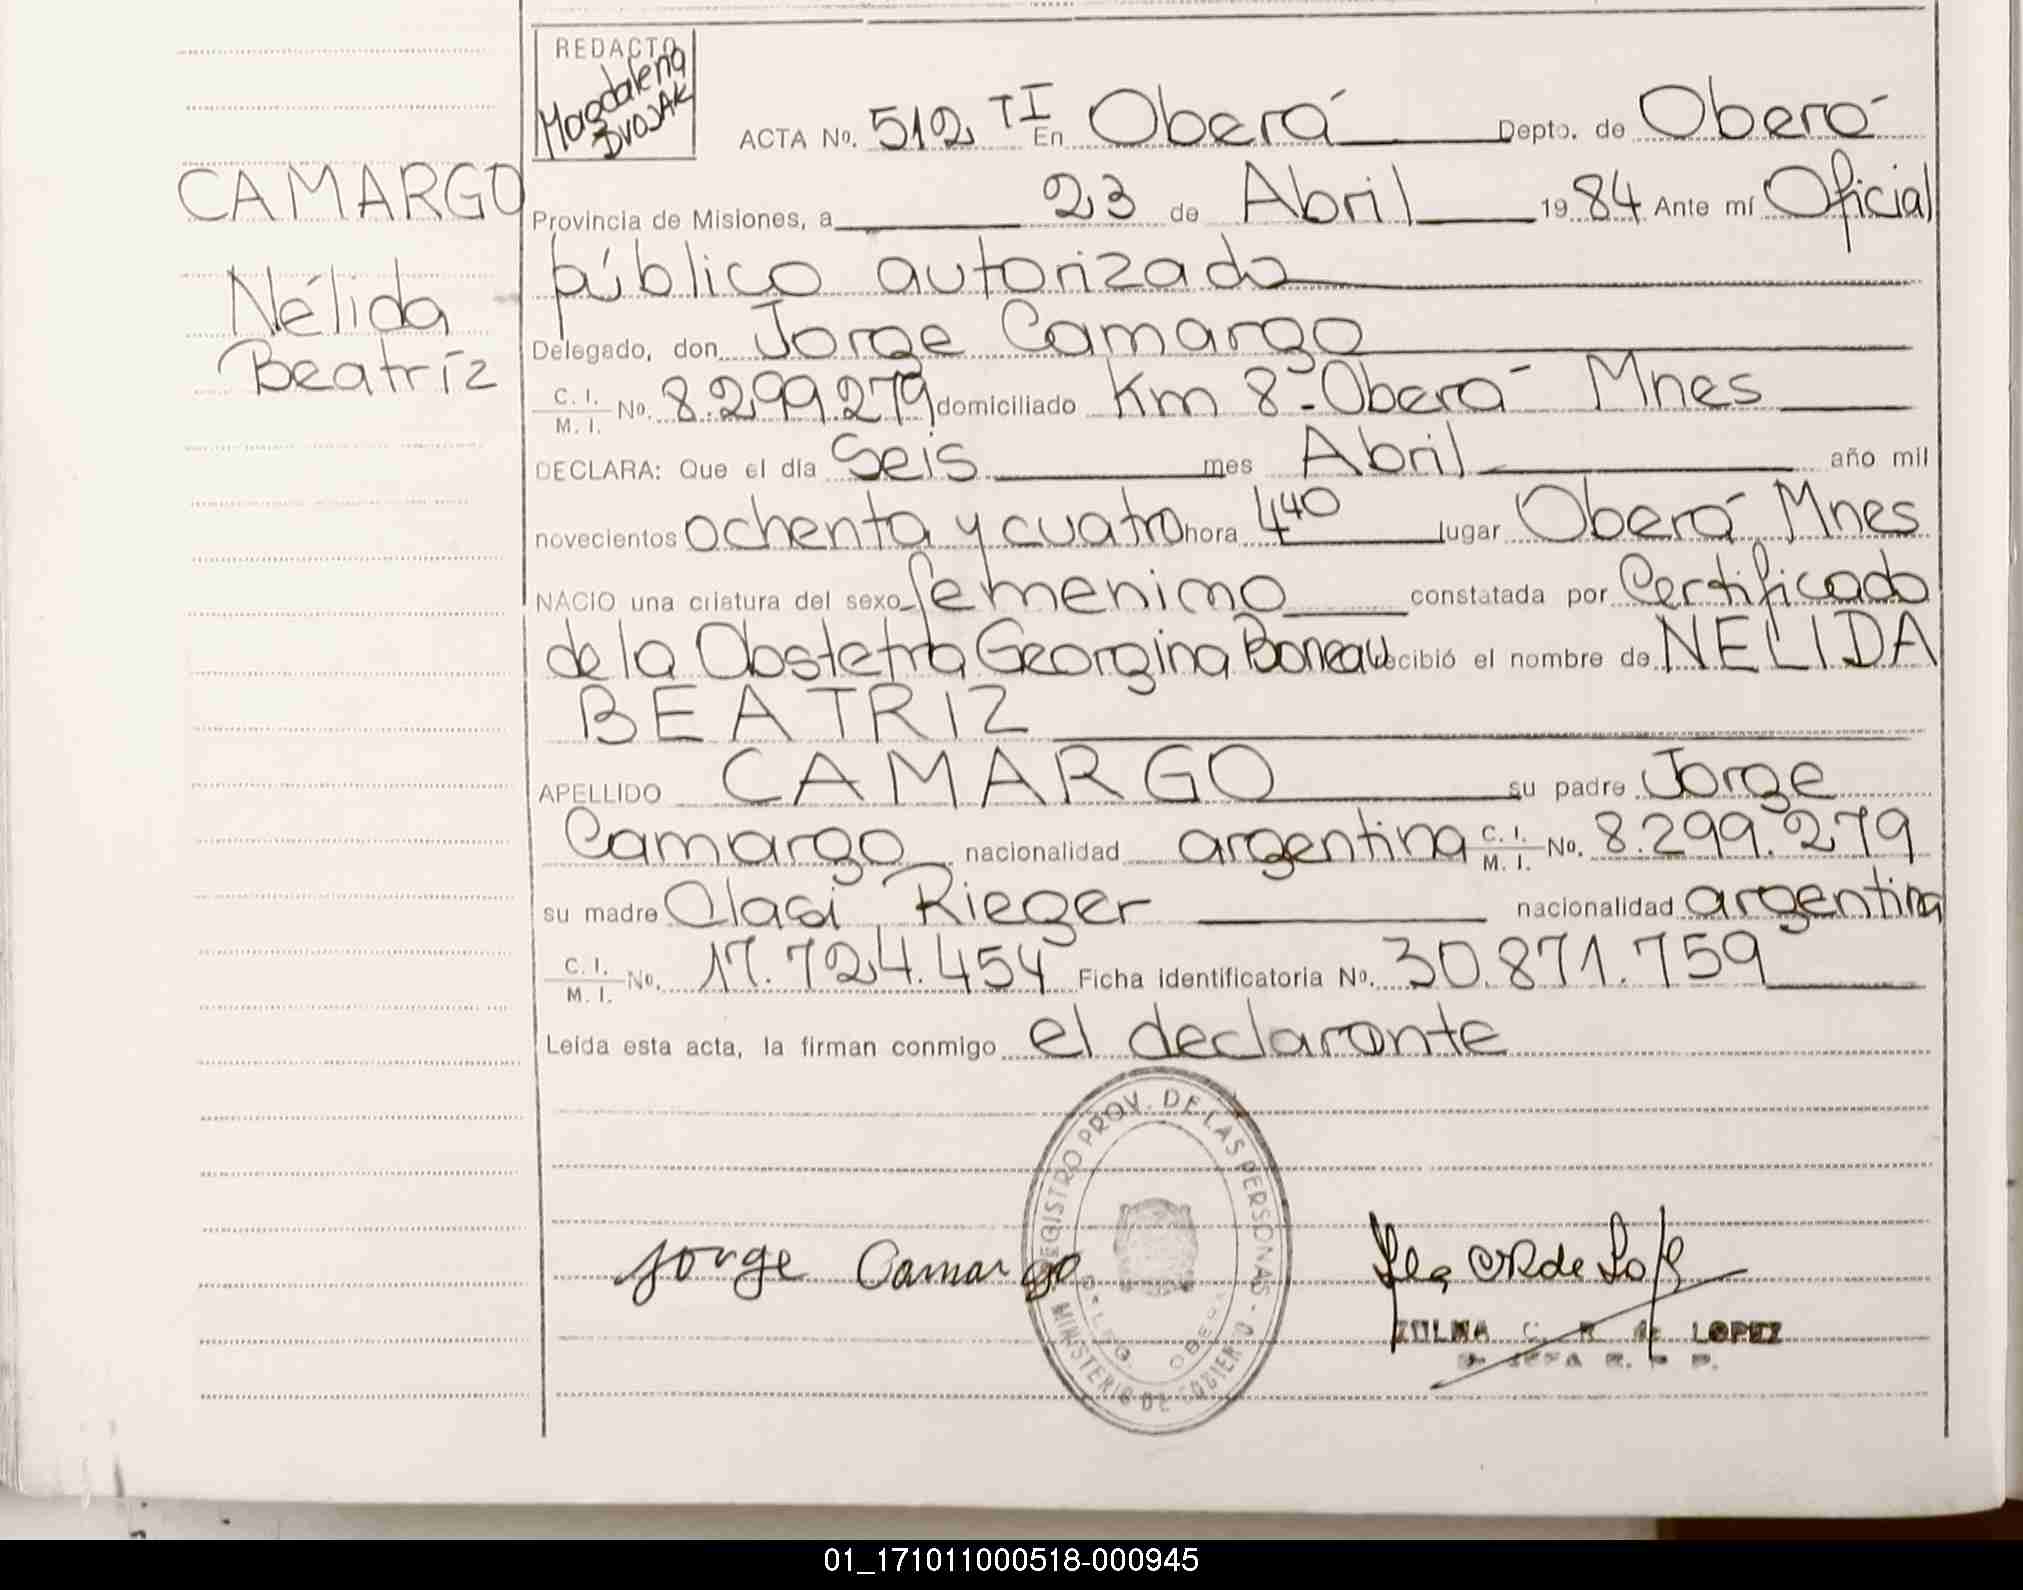 REDACTO
Magdalena
DVOJAK
ACTA No. 512 TI En Oberá Depto. de Oberá
CAMARGO
Nélida
Beatríz
Provincia de Misiones, a 23 de Abril 1984 Ante mí Oficial
público autorizado
Delegado, don Jorge Camargo
C. I. M. I. No. 8.299.279 domiciliado Km 8-Oberá Mnes
DECLARA: Que el día Seis mes Abril año mil
novecientos ochenta y cuatro hora 4 40 lugar Oberá, Mnes
NACIO una criatura del sexo femenino constatada por Certificado
de la Obstetra Georgina Boneau recibió el nombre de NELIDA
BEATRIZ
APELLIDO CAMARGO su padre Jorge
Camargo nacionalidad argentina C. I. M. I. No. 8.299.279
su madre Olasi Rieger nacionalidad argentina
C. I. M. I. No. 17.724.454 Ficha identificatoria No. 30.871.759
Leída esta acta, la firman conmigo el declarante
REGISTRO PROV. DE LAS PERSONAS - MINISTERIO DE GOBIERNO
DELEG. OBERA
Jorge Camargo
ZULMA C. R. de LOPEZ
JEFA R. P. P.
01_171011000518-000945